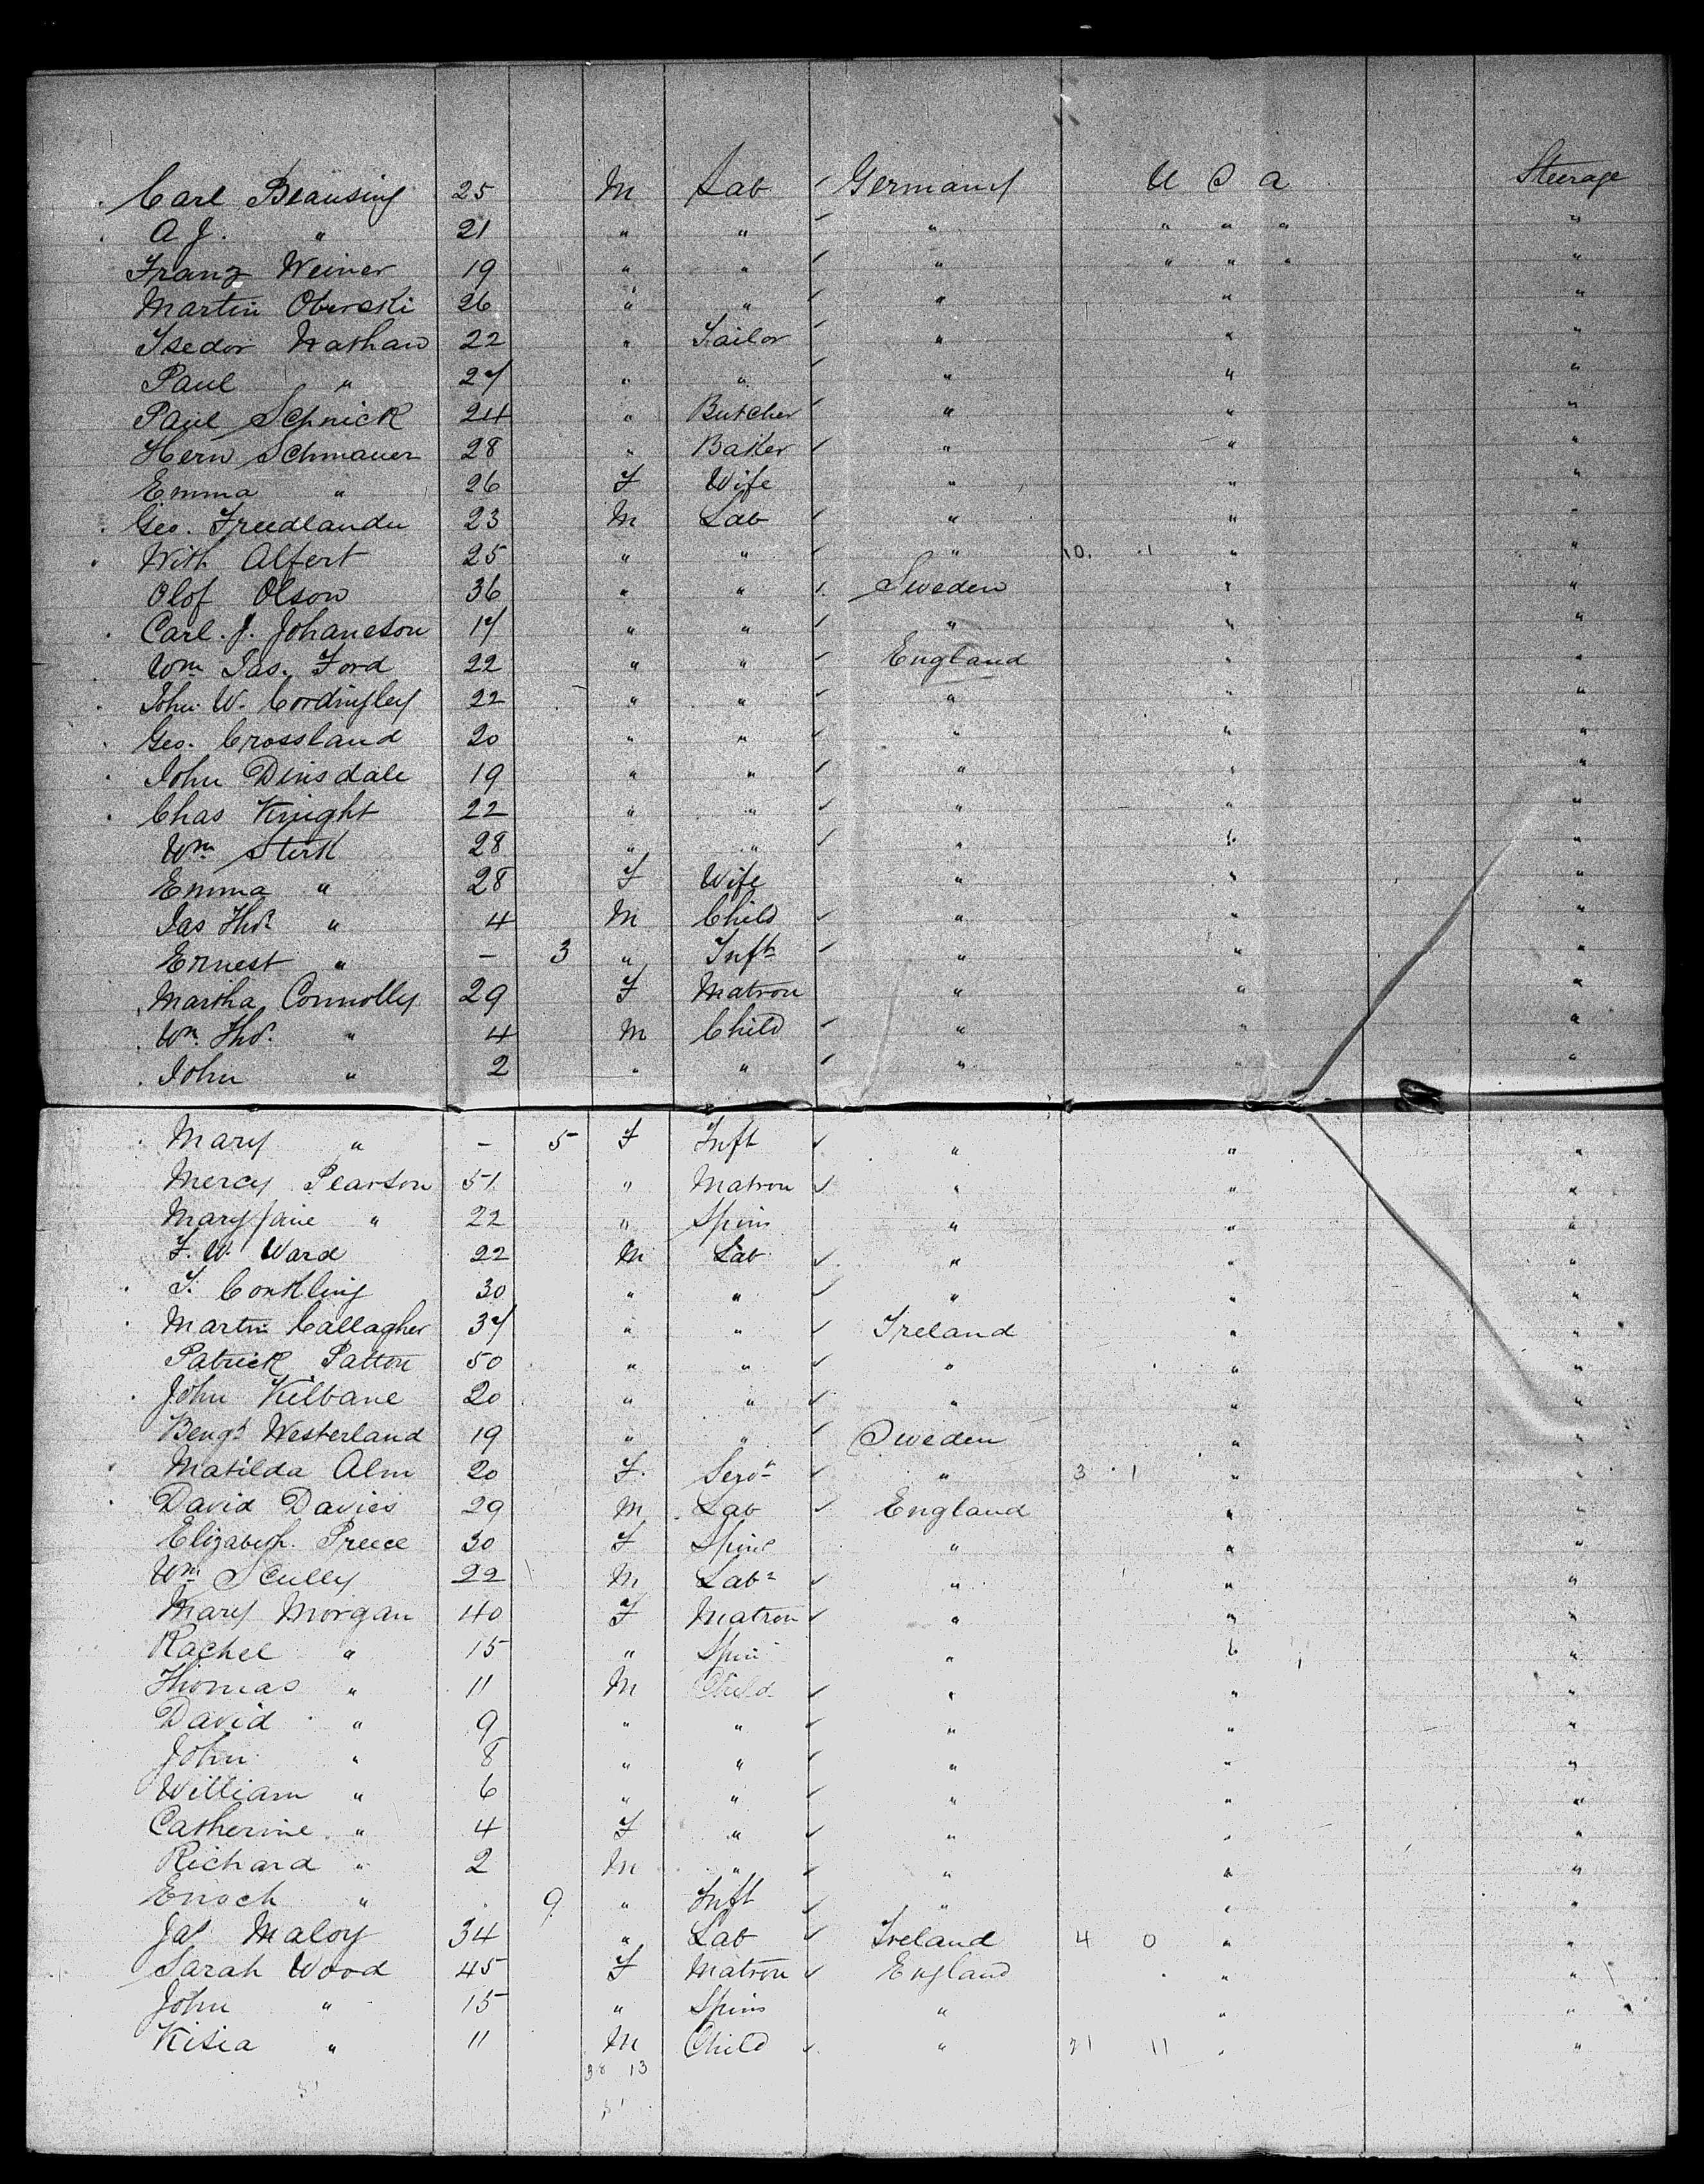 Carl Beausing 25 M Lab ✓ Germany U S A Steerage
A J. " 21 " " ✓ " " " " "
Franz Weiner 19 " " ✓ " " " " "
Martin Oberski 26 " " ✓ " " "
Isedor Nathan 22 " Tailor ✓ " " "
Paul " 27 " " ✓ " " "
Paul Schnick 24 " Butcher ✓ " " "
Hern Schmauer 28 " Baker ✓ " " "
Emma " 26 F Wife " " "
Geo. Freedlander 23 M Lab ✓ " " "
With Alfert 25 " " ✓ " 10. 1 " "
Olof Olson 36 " " ✓ Sweden " "
Carl. J. Johaneson 17 " " ✓ " " "
Wm Jas. Ford 22 " " ✓ England " "
John W. Cordingley 22 " " ✓ " " "
Geo. Crossland 20 " " ✓ " " "
John Dinsdale 19 " " ✓ " " "
Chas Knight 22 " " ✓ " " "
Wm Sterk 28 " " ✓ " " "
Emma " 28 F Wife " " "
Jas Thos " 4 M Child ✓ " " "
Ernest " - 3 " Inft ✓ " " "
Martha Connolly 29 F Matron " " "
Wm. Thos. " 4 M Child ✓ " " "
John " 2 " " ✓ " " "
Mary " - 5 F Inft ✓ " " "
Mercy Pearson 51 " Matron ✓ " " "
Mary Jane " 22 " Spins " " "
F. W. Ward 22 M Lab ✓ " " "
T. Conkling 30 " " ✓ " " "
Martin Callagher 37 " " ✓ Ireland " "
Patrick Patton 50 " " ✓ " " "
John Kilbane 20 " " ✓ " " "
Bengt Westerland 19 " " ✓ Sweden " "
Matilda Alm 20 F. Servt ✓ " 3 1 " "
David Davies 29 M Lab ✓ England " "
Elizabeth. Preece 30 F Spins " " "
Wm Scully 22 M Labr ✓ " " "
Mary Morgan 40 F Matron ✓ " " "
Rachel " 15 " Spin " " "
Thomas " 11 M Child ✓ " " "
David " 9 " " ✓ " " "
John " 8 " " ✓ " " "
William " 6 " " ✓ " " "
Catherine " 4 F " ✓ " " "
Richard " 2 M " ✓ " " "
Enoch " 9 " Inft ✓ " " "
Jas Maloy 34 " Lab ✓ Ireland 4 0 " "
Sarah Wood 45 F Matron ✓ England " "
John " 15 " Spins " " "
Kisia " 11 M Child ✓ " 21 11 " "
38 13
51